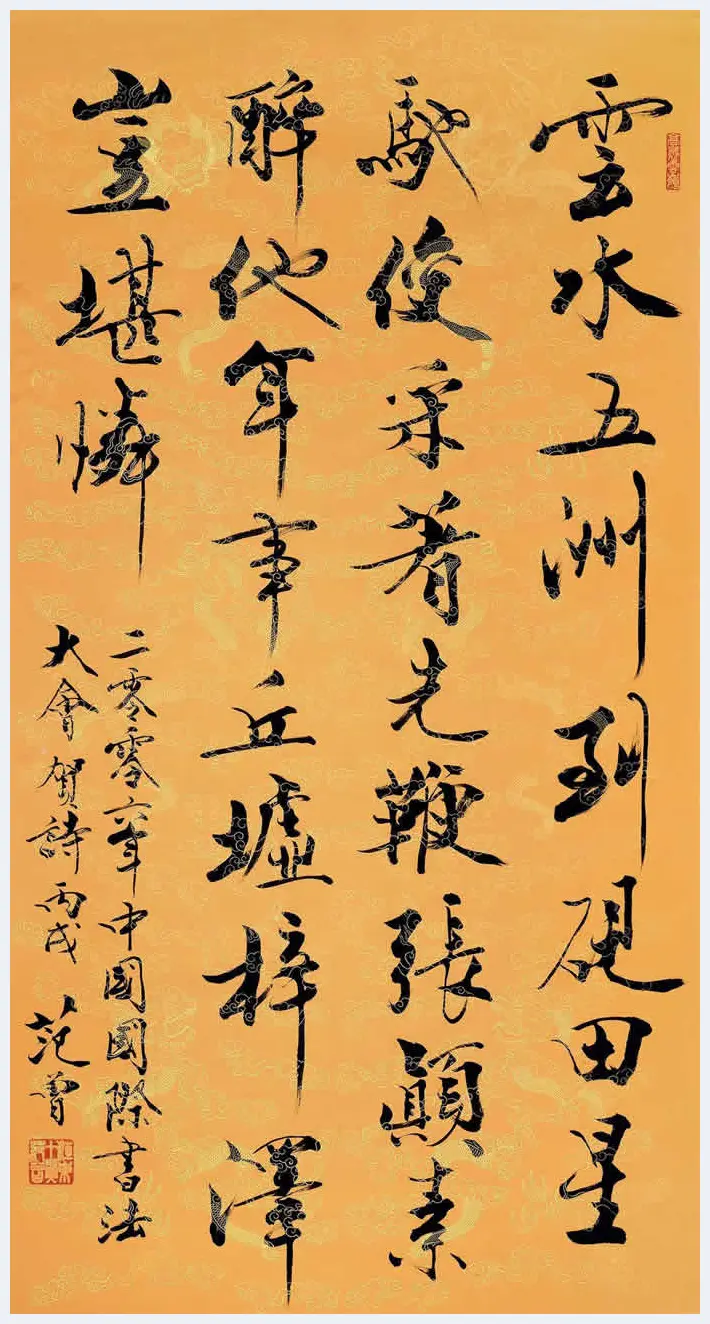 雲水五洲到硯田星
馳俊采著先鞭張顛素
醉他年事丘墟梓澤
豈堪憐
二零零六年中國國際書法
大會賀詩丙戌范曾